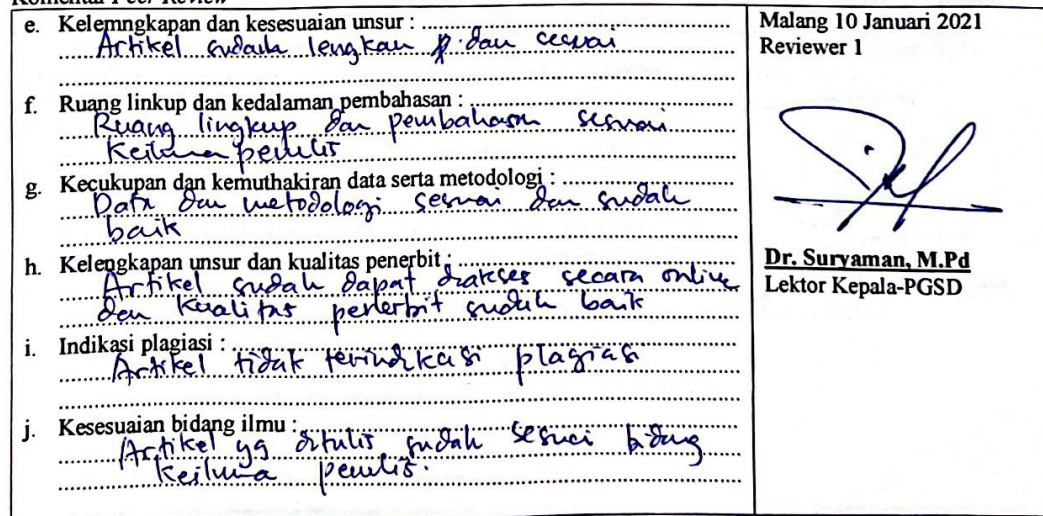 Komentar Peer Review
e. Kelemngkapan dan kesesuaian unsur :
Artikel sudah lengkap dan sesuai
f. Ruang linkup dan kedalaman pembahasan :
Ruang lingkup dan pembahasan sesuai
keilmua penulis
g. Kecukupan dan kemuthakiran data serta metodologi :
Data dan metodologi sesuai dan sudah
baik
h. Kelengkapan unsur dan kualitas penerbit :
Artikel sudah dapat diakses secara online
dan kualitas penerbit sudah baik
i. Indikasi plagiasi :
Artikel tidak terindikasi plagiasi
j. Kesesuaian bidang ilmu :
Artikel yg ditulis sudah sesuai bidang
keilmua penulis.
Malang 10 Januari 2021
Reviewer 1
Dr. Suryaman, M.Pd
Lektor Kepala-PGSD